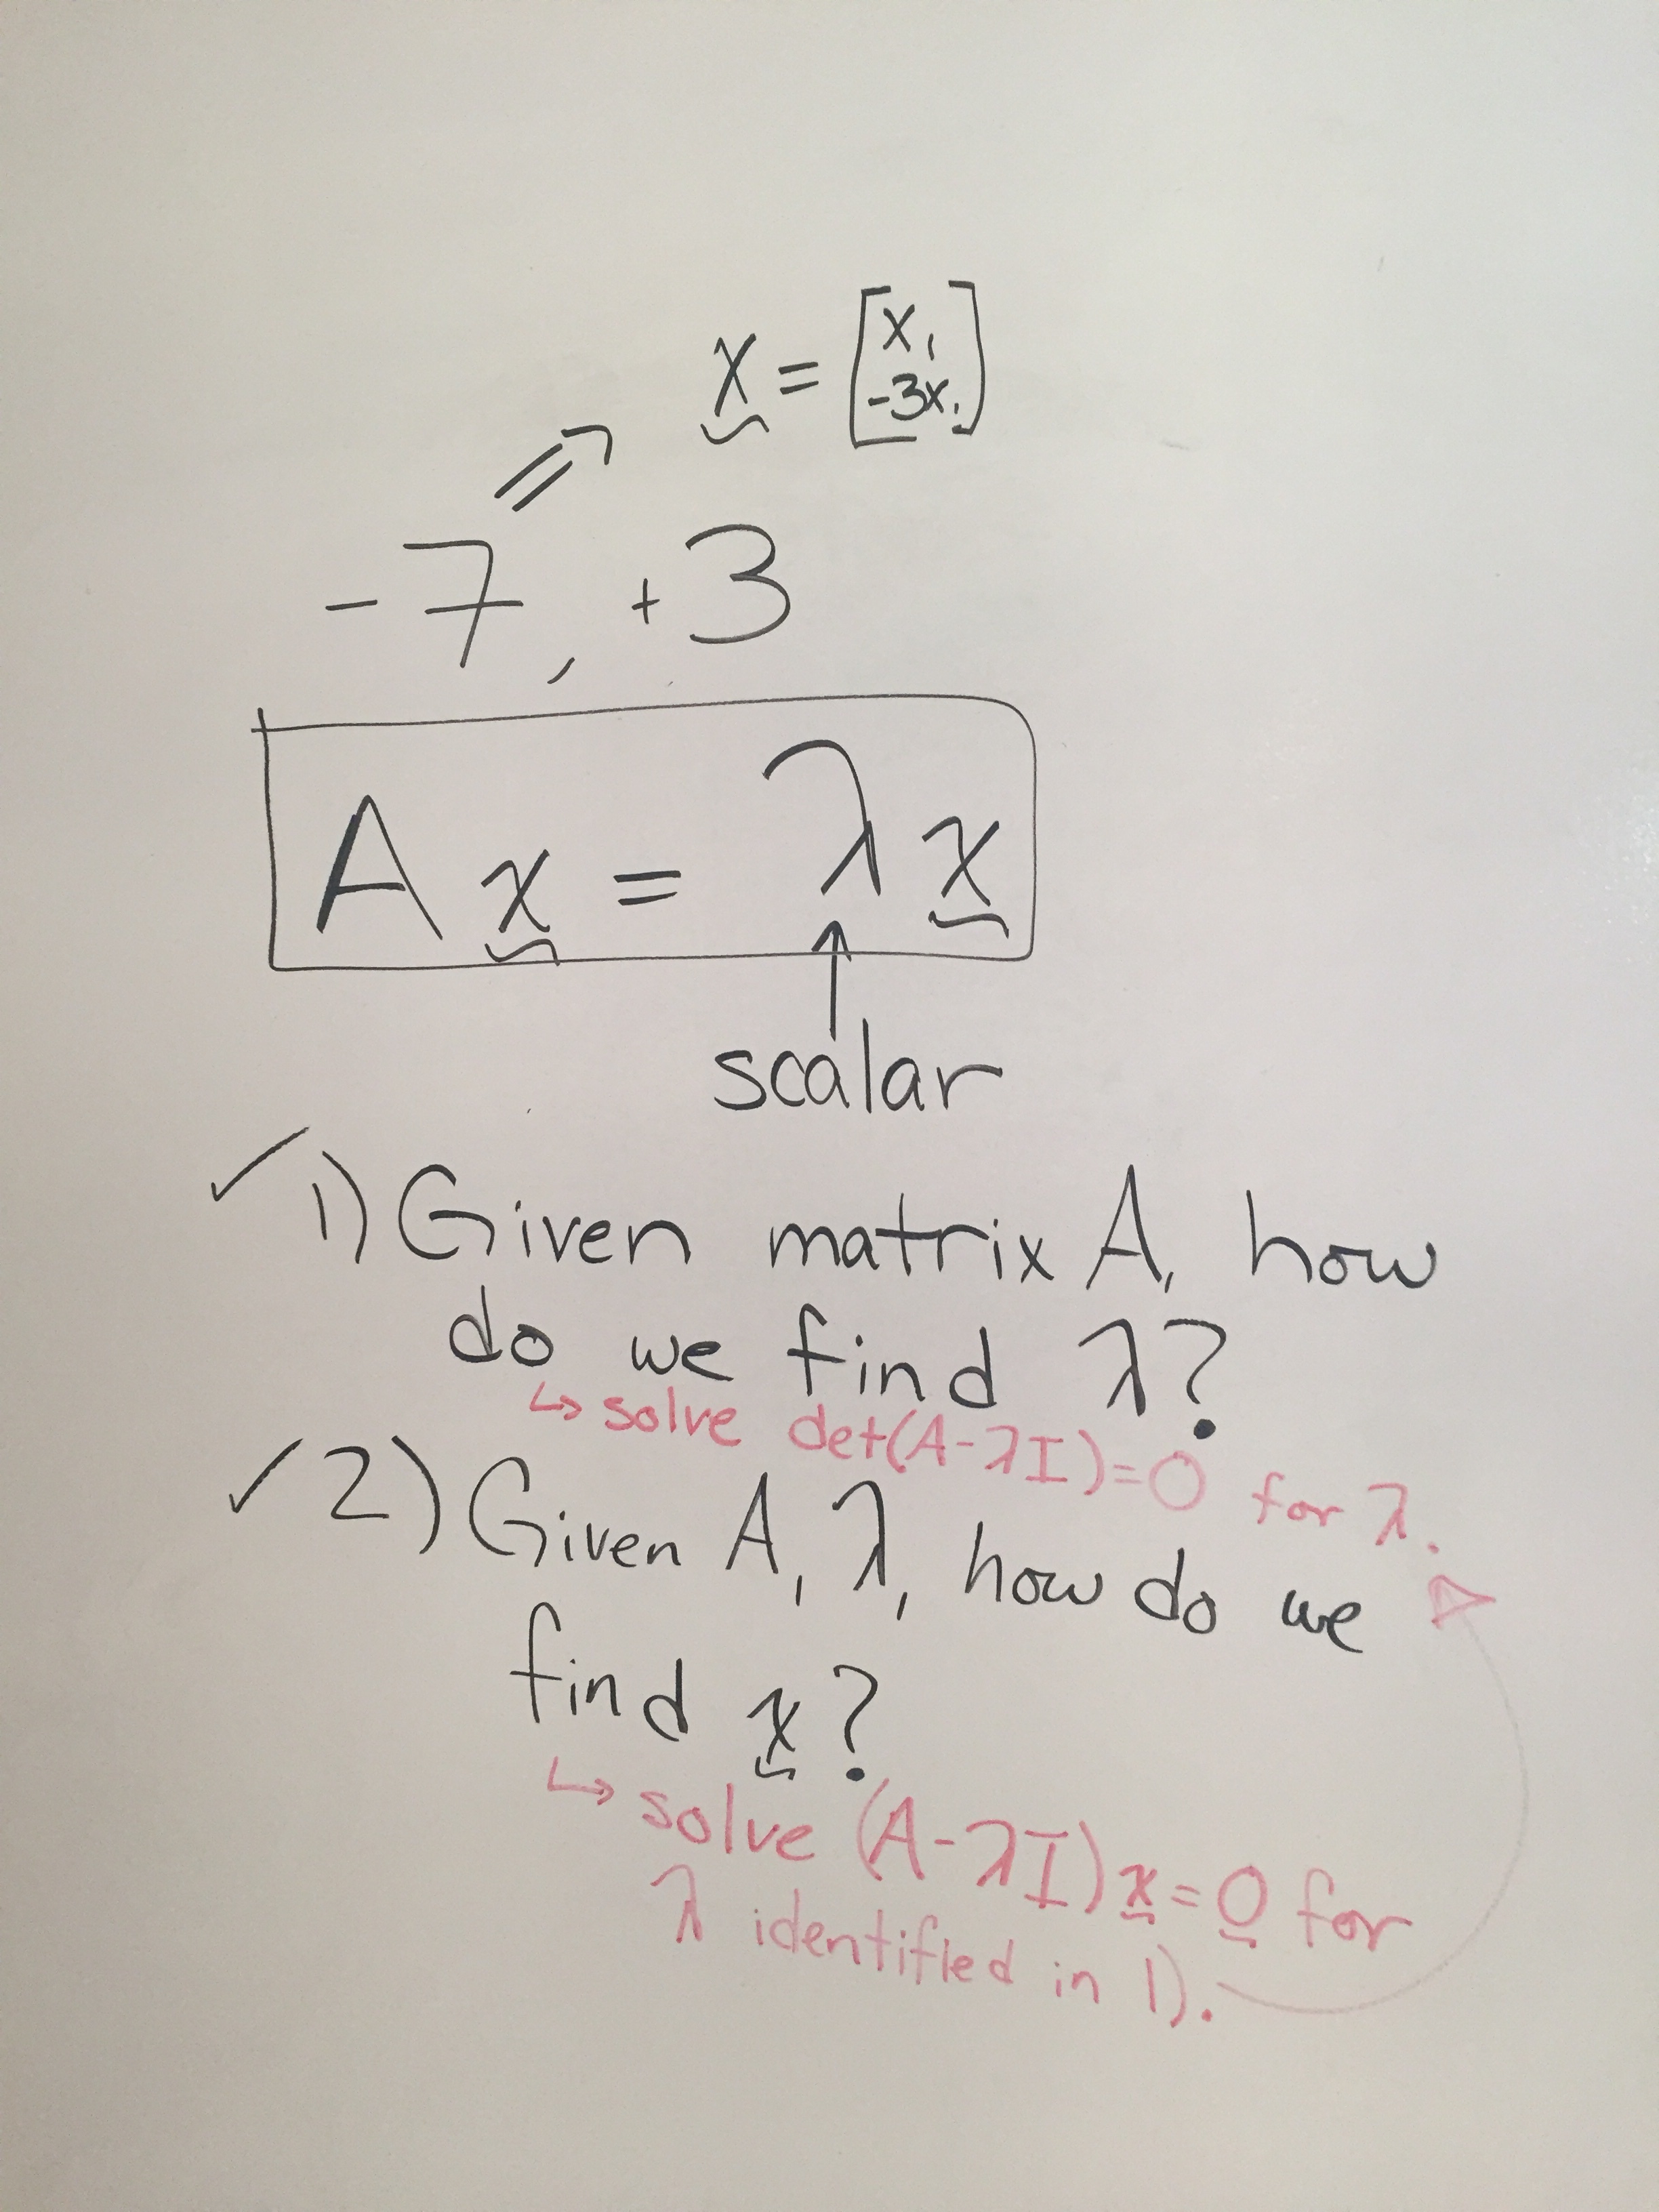 x = [x₁
-3x₁]
-7, +3
A x = λ x
scalar
✓ 1) Given matrix A, how
do we find λ?
↳ solve det(A-λI)=0 for λ.
✓ 2) Given A, λ, how do we
find x?
↳ solve (A-λI)x=0 for
λ identified in 1).